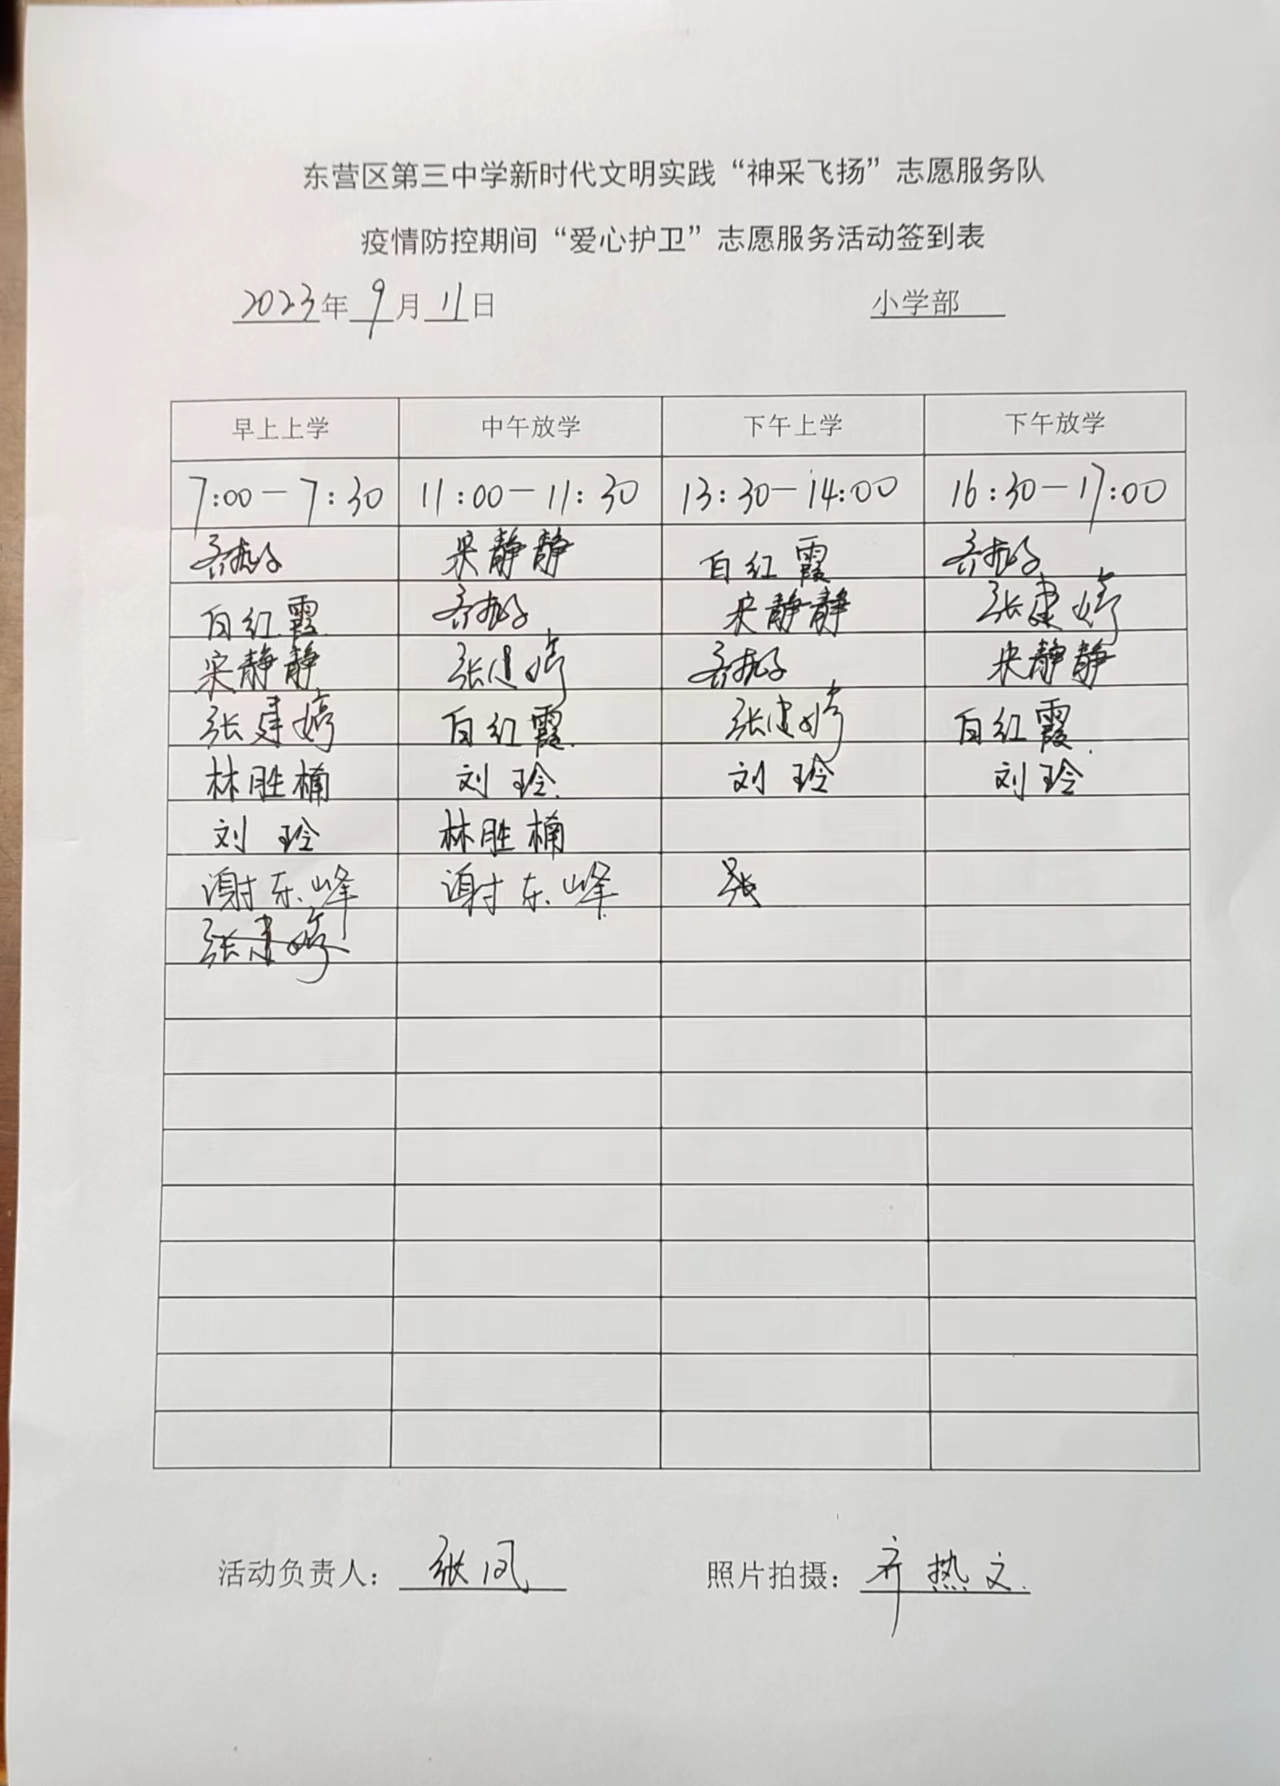 东营区第三中学新时代文明实践“神采飞扬”志愿服务队
疫情防控期间“爱心护卫”志愿服务活动签到表
2023年9月11日 小学部
早上上学 中午放学 下午上学 下午放学
7:00-7:30 11:00-11:30 13:30-14:00 16:30-17:00
宋静静 白红霞
白红霞 宋静静 张建婷
宋静静 张建婷 宋静静
张建婷 白红霞 张建婷 白红霞
林胜楠 刘玲 刘玲 刘玲
刘玲 林胜楠
谢东峰 谢东峰
张建婷
活动负责人：张凤 照片拍摄：齐热文